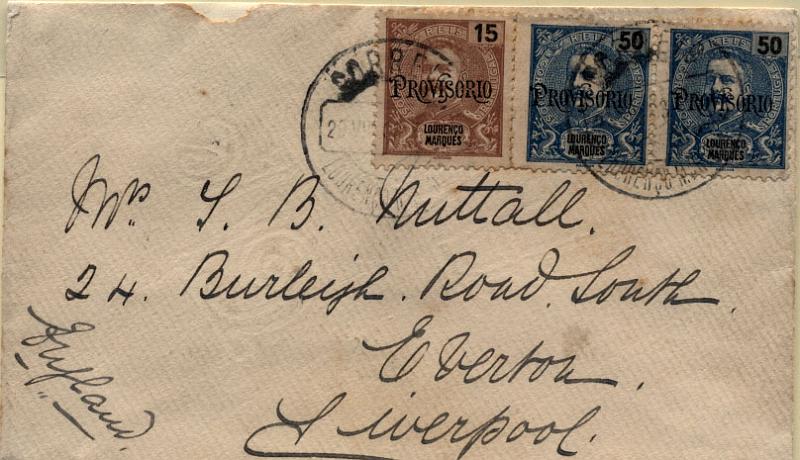 15 50 50
CORRE
PROVISORIO PROVISORIO PROVISORIO
LOURENÇO MARQUES LOURENÇO MARQUES LOURENÇO MARQUES
Mrs S. B. Nuttall.
24. Burleigh. Road. South.
Everton.
Liverpool.
England.